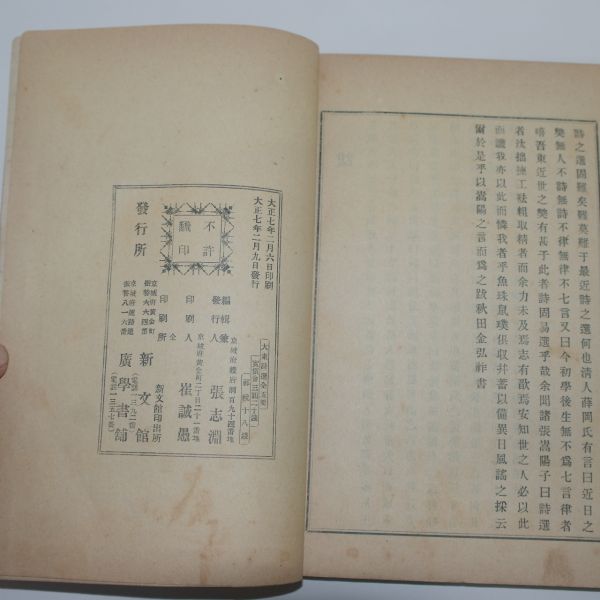 詩之選固難矣難莫難于最近詩之選也清人薛岡氏有言曰近日之
獘無人不詩無詩不律無律不七言又曰今初學後生無不爲七言律者
噫吾東近世之獘有甚于此者詩固易選乎哉余聞諸張嵩陽子曰詩選
者汰拙摭工袪粗取精者而余力未及焉志有歉焉安知世之人必以此
而譏我亦以此而憐我者乎魚珠鼠璞俱収并蓄以備異日風謠之採云
爾於是乎以嵩陽之言而爲之跋秋田金弘祚書
大正七年二月六日印刷
大正七年二月九日發行
不許
飜印
大東詩選全五冊
郵稅十八錢
編輯兼
發行人
張志淵
京城府黃金町二丁目二十一番地
印刷人
崔誠愚
印刷所
仝
新文館印出所
發行所
京城府黃金町
新文館
廣學書舖